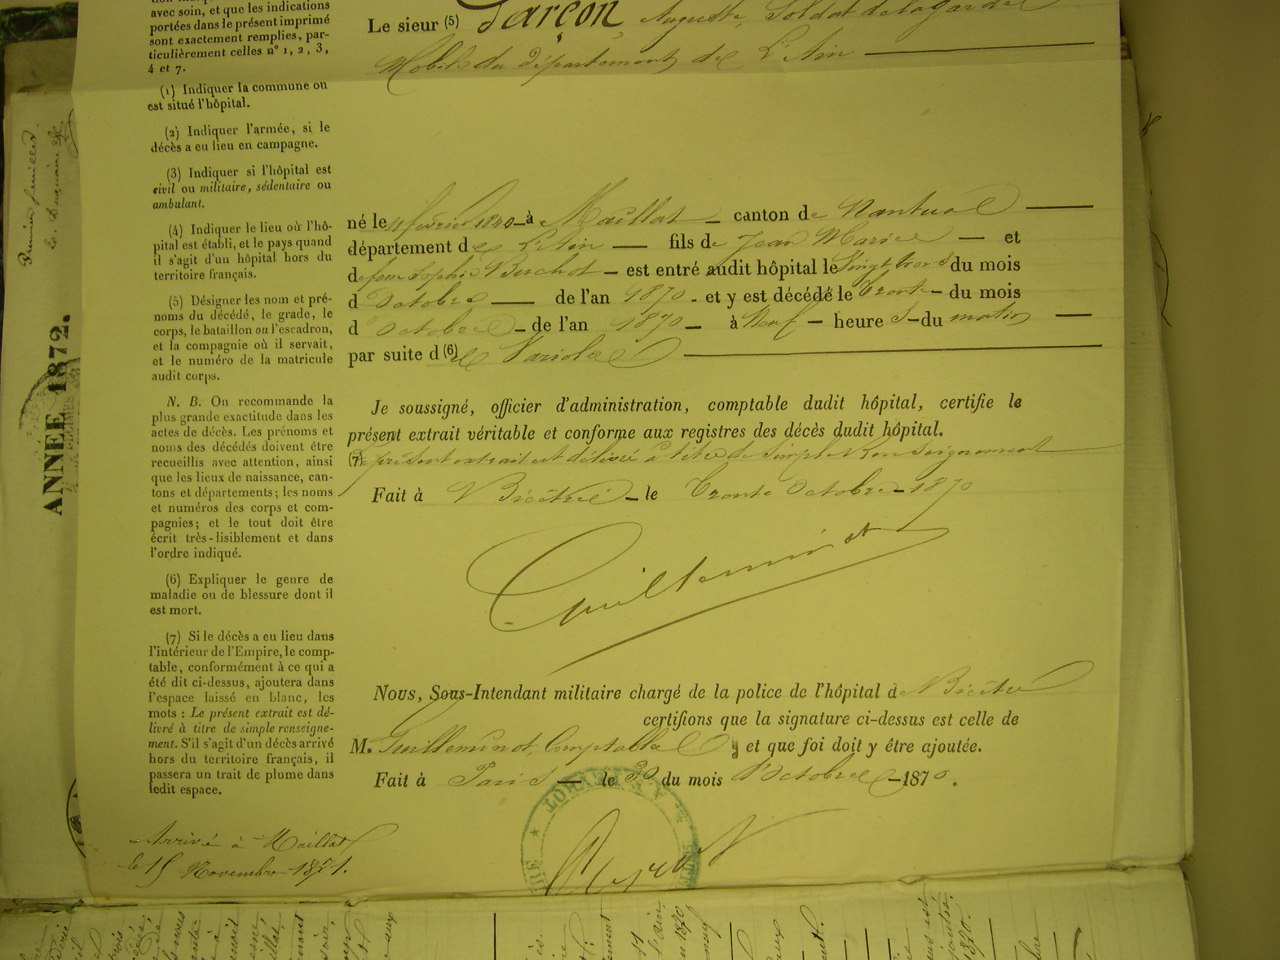 avec soin, et que les indications
portées dans le présent imprimé
sont exactement remplies, par-
ticulièrement celles nos 1, 2, 3,
4 et 7.
(1) Indiquer la commune où
est situé l'hôpital.
(2) Indiquer l'armée, si le
décès a eu lieu en campagne.
(3) Indiquer si l'hôpital est
civil ou militaire, sédentaire ou
ambulant.
(4) Indiquer le lieu où l'hô-
pital est établi, et le pays quand
il s'agit d'un hôpital hors du
territoire français.
(5) Désigner les nom et pré-
noms du décédé, le grade, le
corps, le bataillon ou l'escadron,
et la compagnie où il servait,
et le numéro de la matricule
audit corps.
N. B. On recommande la
plus grande exactitude dans les
actes de décès. Les prénoms et
noms des décédés doivent être
recueillis avec attention, ainsi
que les lieux de naissance, can-
tons et départements; les noms
et numéros des corps et com-
pagnies; et le tout doit être
écrit très-lisiblement et dans
l'ordre indiqué.
(6) Expliquer le genre de
maladie ou de blessure dont il
est mort.
(7) Si le décès a eu lieu dans
l'intérieur de l'Empire, le comp-
table, conformément à ce qui a
été dit ci-dessus, ajoutera dans
l'espace laissé en blanc, les
mots : Le présent extrait est dé-
livré à titre de simple renseigne-
ment. S'il s'agit d'un décès arrivé
hors du territoire français, il
passera un trait de plume dans
ledit espace.
Le sieur (5) Garçon, Auguste, Soldat de la garde
Mobile du département de l'Ain
né le 11 février 1840 à Maillat canton de Nantua
département de l'Ain fils de Jean Marie et
de feue Sophie Berchot est entré audit hôpital le Vingt trois du mois
d'Octobre de l'an 1870 et y est décédé le trente du mois
d'Octobre de l'an 1870 à Neuf heures du matin
par suite d(6)e Variole
Je soussigné, officier d'administration, comptable dudit hôpital, certifie le
présent extrait véritable et conforme aux registres des décès dudit hôpital.
(7) Le présent extrait est délivré à titre de simple Renseignement
Fait à Bicêtre le trente Octobre 1870
Guilleminot
Nous, Sous-Intendant militaire chargé de la police de l'hôpital de Bicêtre
certifions que la signature ci-dessus est celle de
M. Guilleminot, Comptable et que foi doit y être ajoutée.
Fait à Paris le 30 du mois Octobre 1870.
Arrivé à Maillat
le 15 Novembre 1871.
ANNÉE 1872.